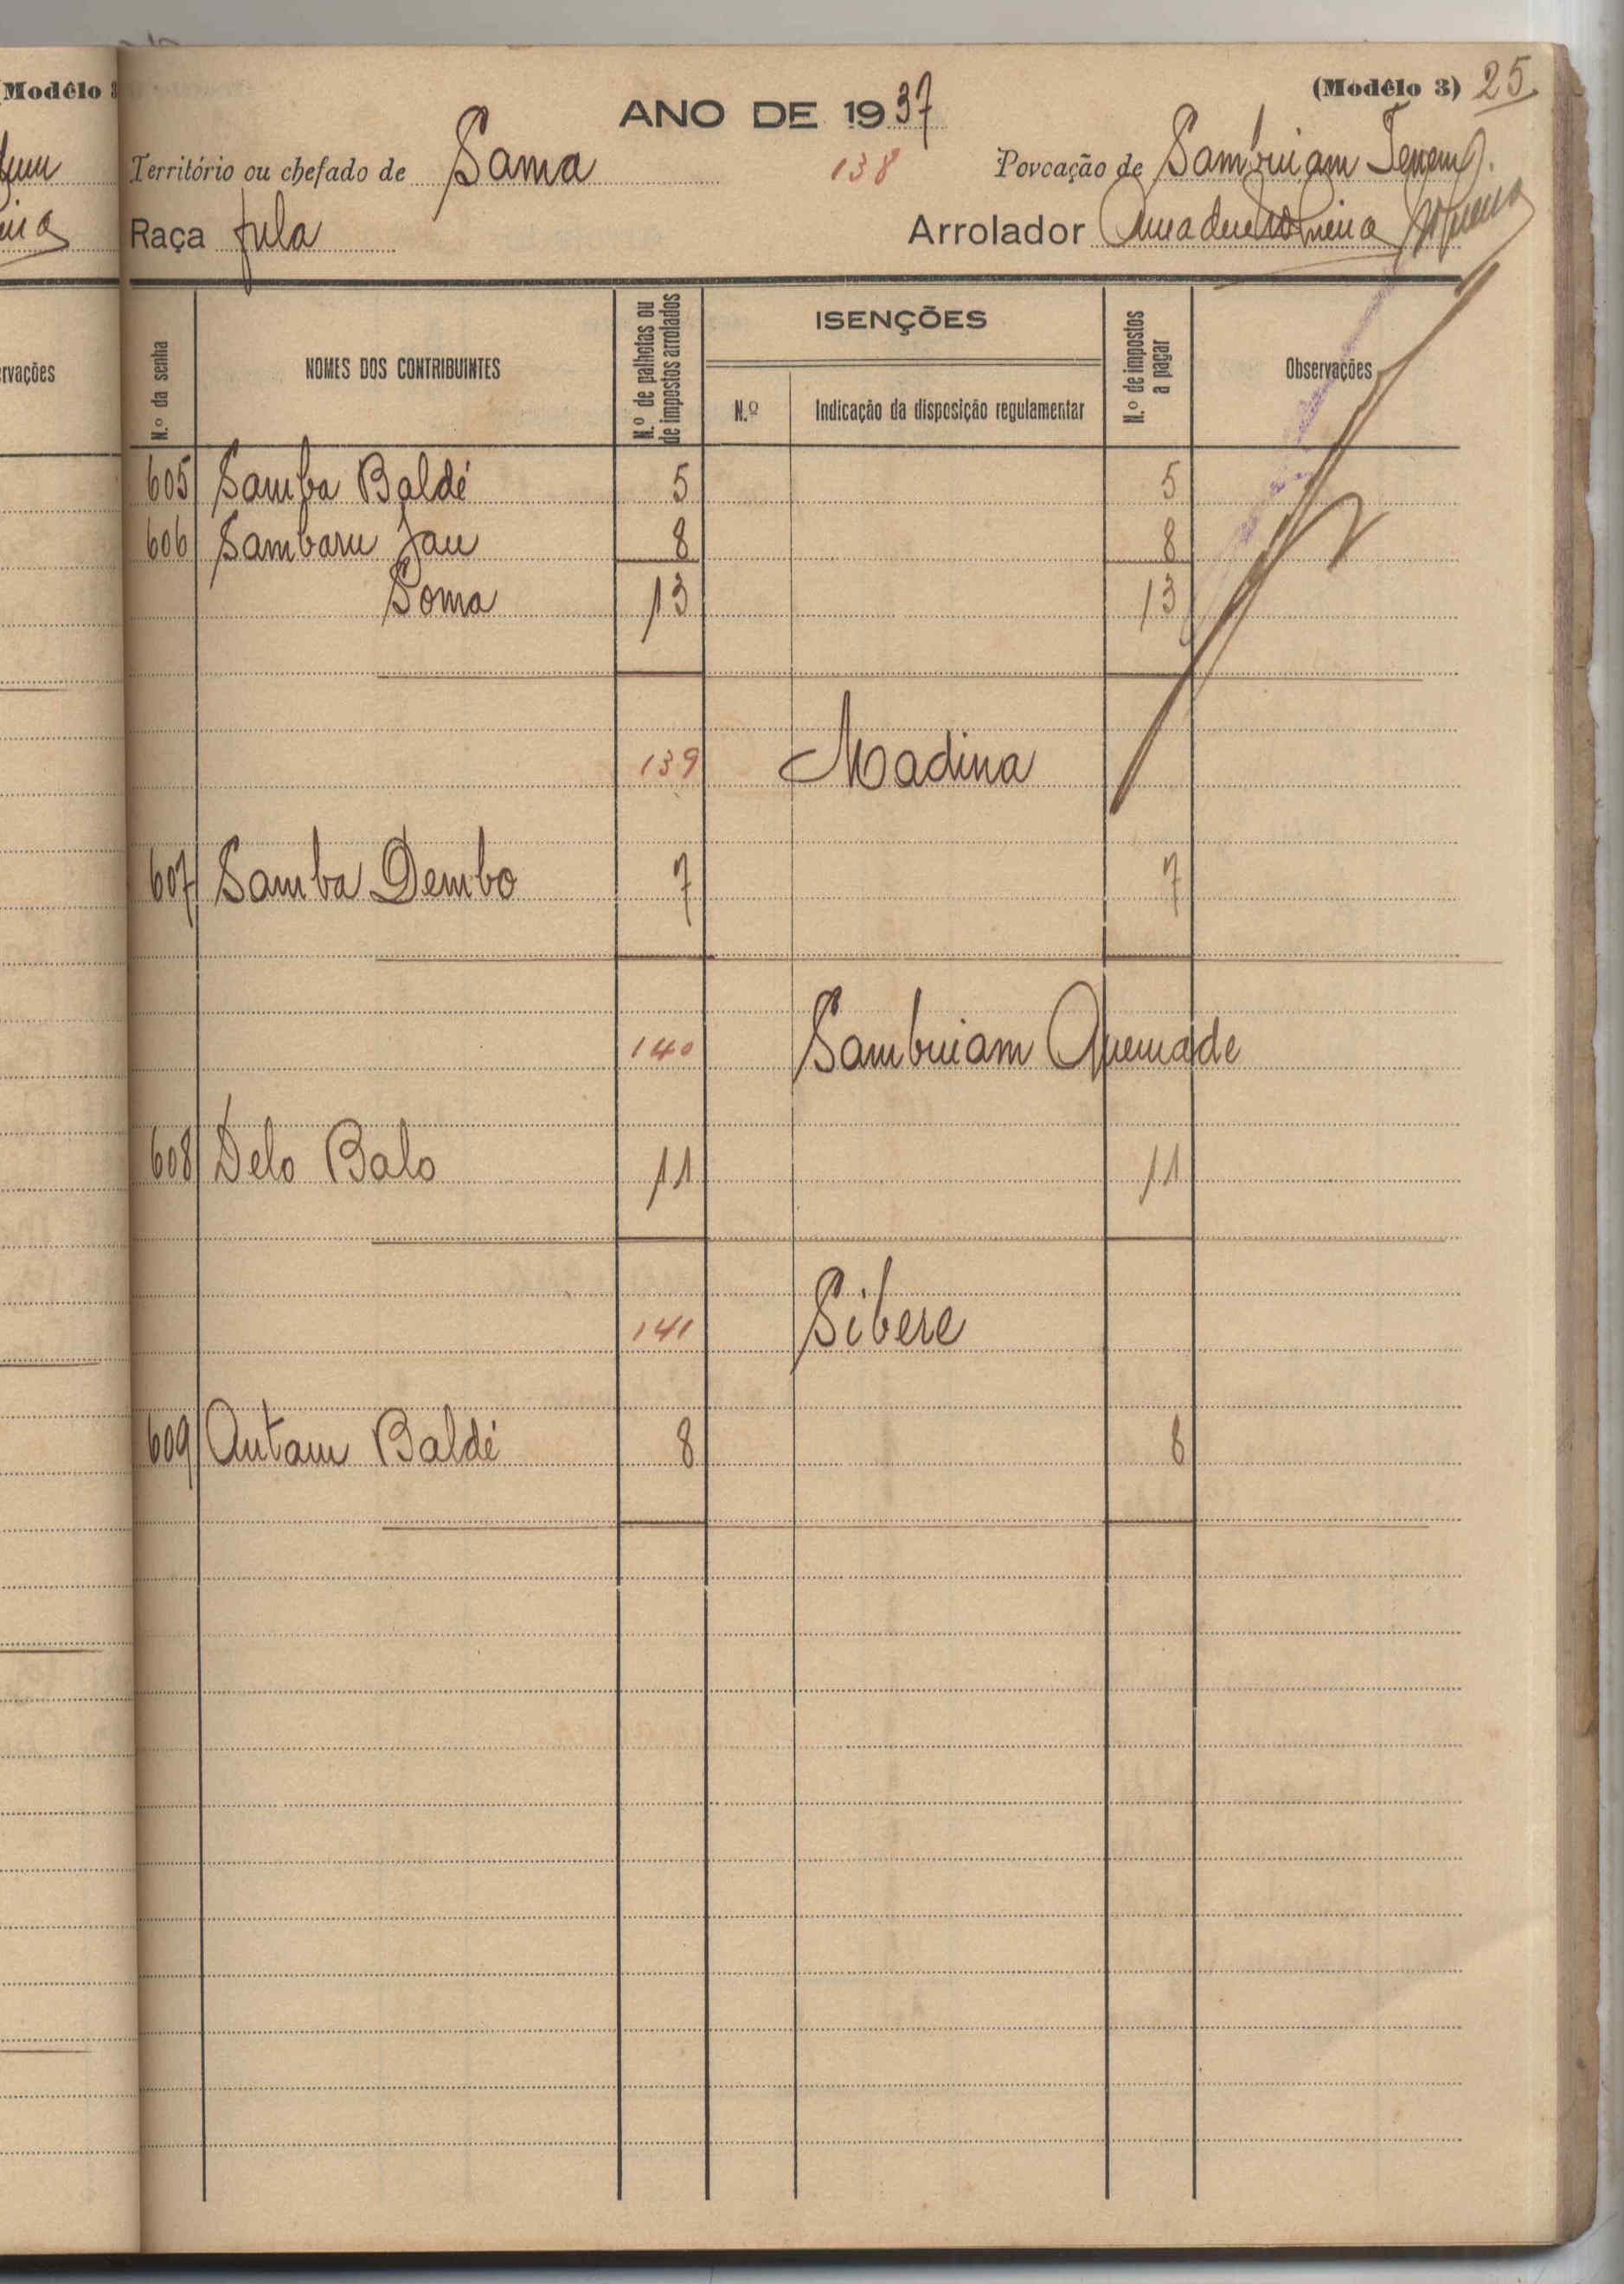 (Modêlo 3) 25
ANO DE 1937
Território ou chefado de Sama 138 Povoação de Sambuiam Tenem
Raça fula Arrolador
N.º da senha
NOMES DOS CONTRIBUINTES
N.º de palhotas ou de impostos arrolados
ISENÇÕES
N.º
Indicação da disposição regulamentar
N.º de impostos a pagar
Observações
605 Samba Baldé 5 5
606 Sambaru Jau 8 8
Soma 13 13
139 Madina
607 Samba Dembo 7 7
140 Sambuiam Quemade
608 Delo Balo 11 11
141 Sibere
609 Autam Baldé 8 8
(Modêlo
rvações